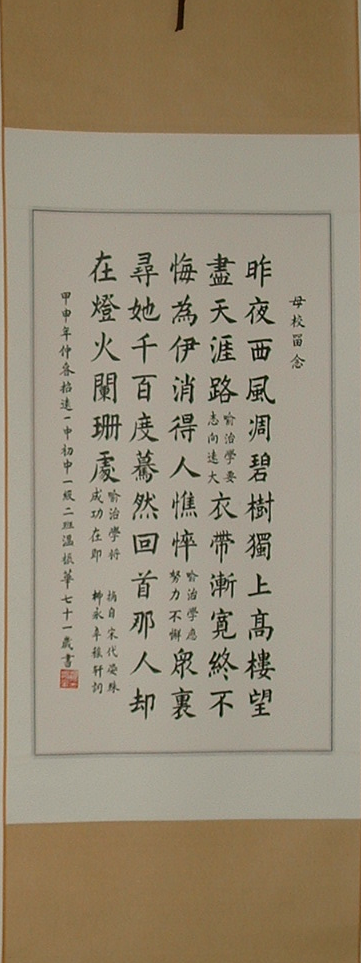 母校留念
昨夜西風凋碧樹獨上高樓望
盡天涯路喻治學要志向遠大衣帶漸寬終不
悔為伊消得人憔悴喻治學應努力不懈眾裏
尋她千百度驀然回首那人却
在燈火闌珊處喻治學將成功在即 摘自宋代晏殊柳永辛稼軒詞
甲申年仲春招遠一中初中一級二班溫振華七十一歲書